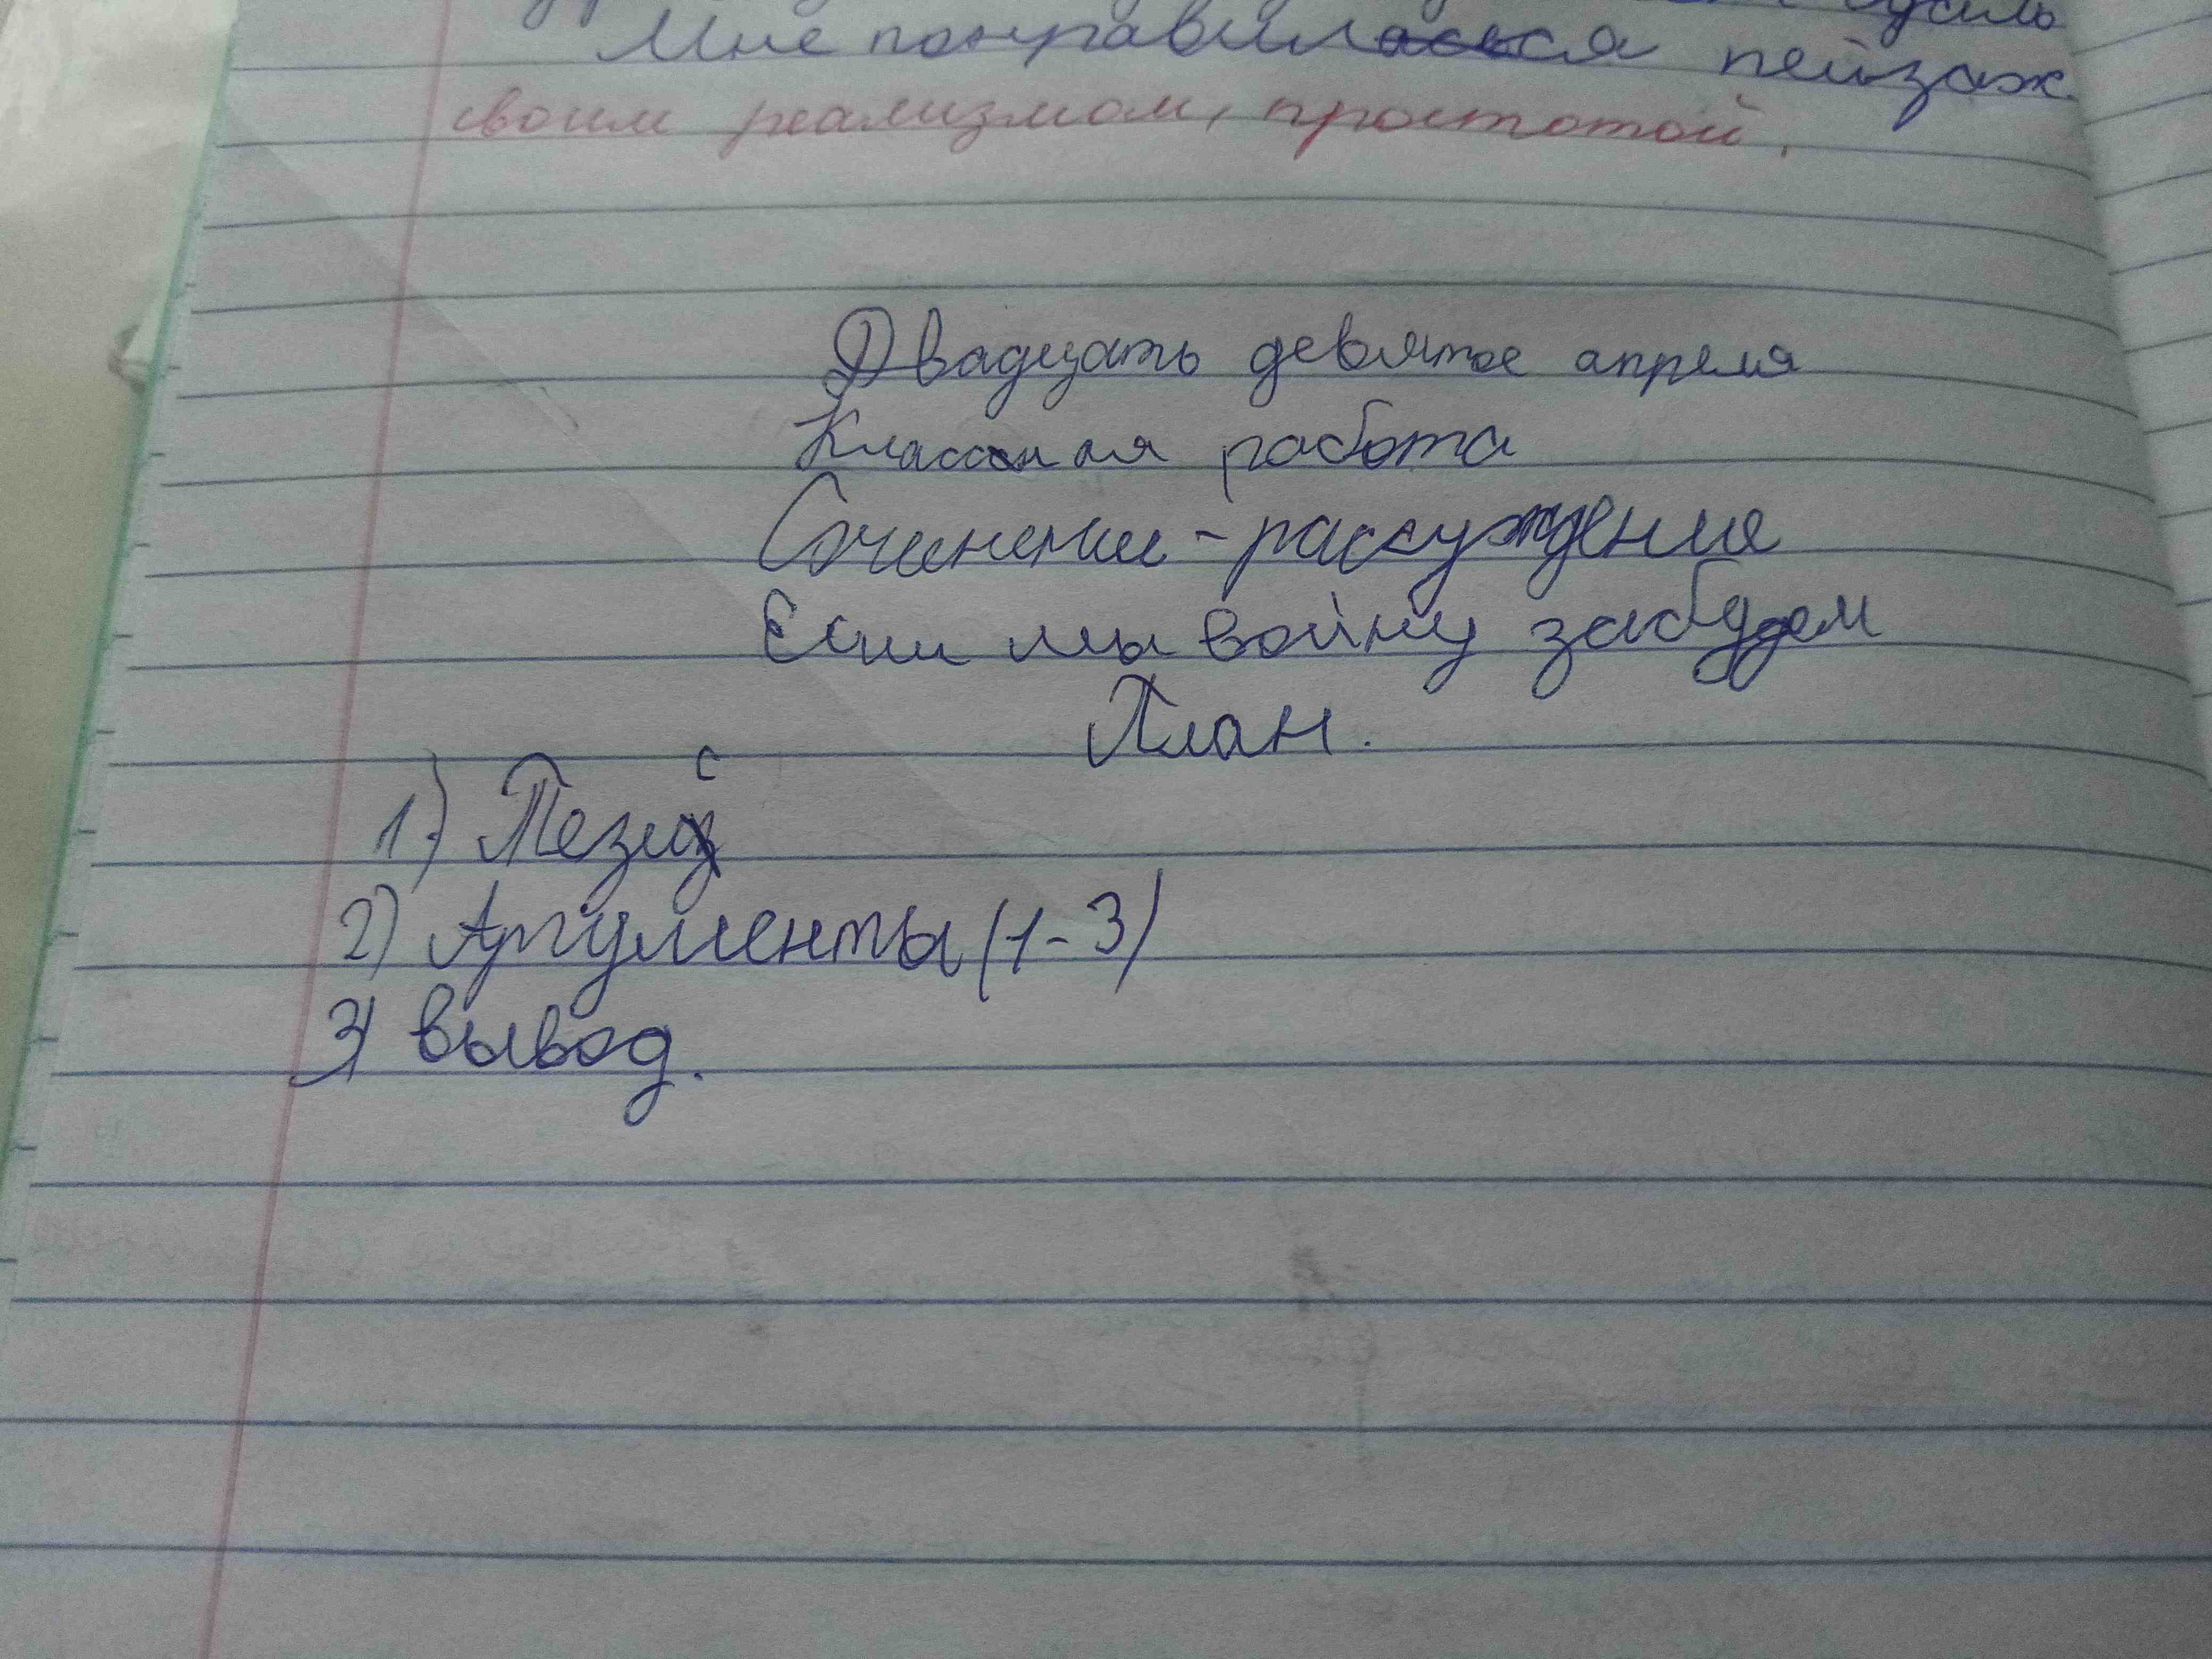 Мне понравился пейзаж
своим реализмом, простотой.
Двадцать девятое апреля
Классная работа
Сочинение-рассуждение
Если мы войну забудем
План.
1) Тезис
2) Аргументы (1-3)
3) вывод.